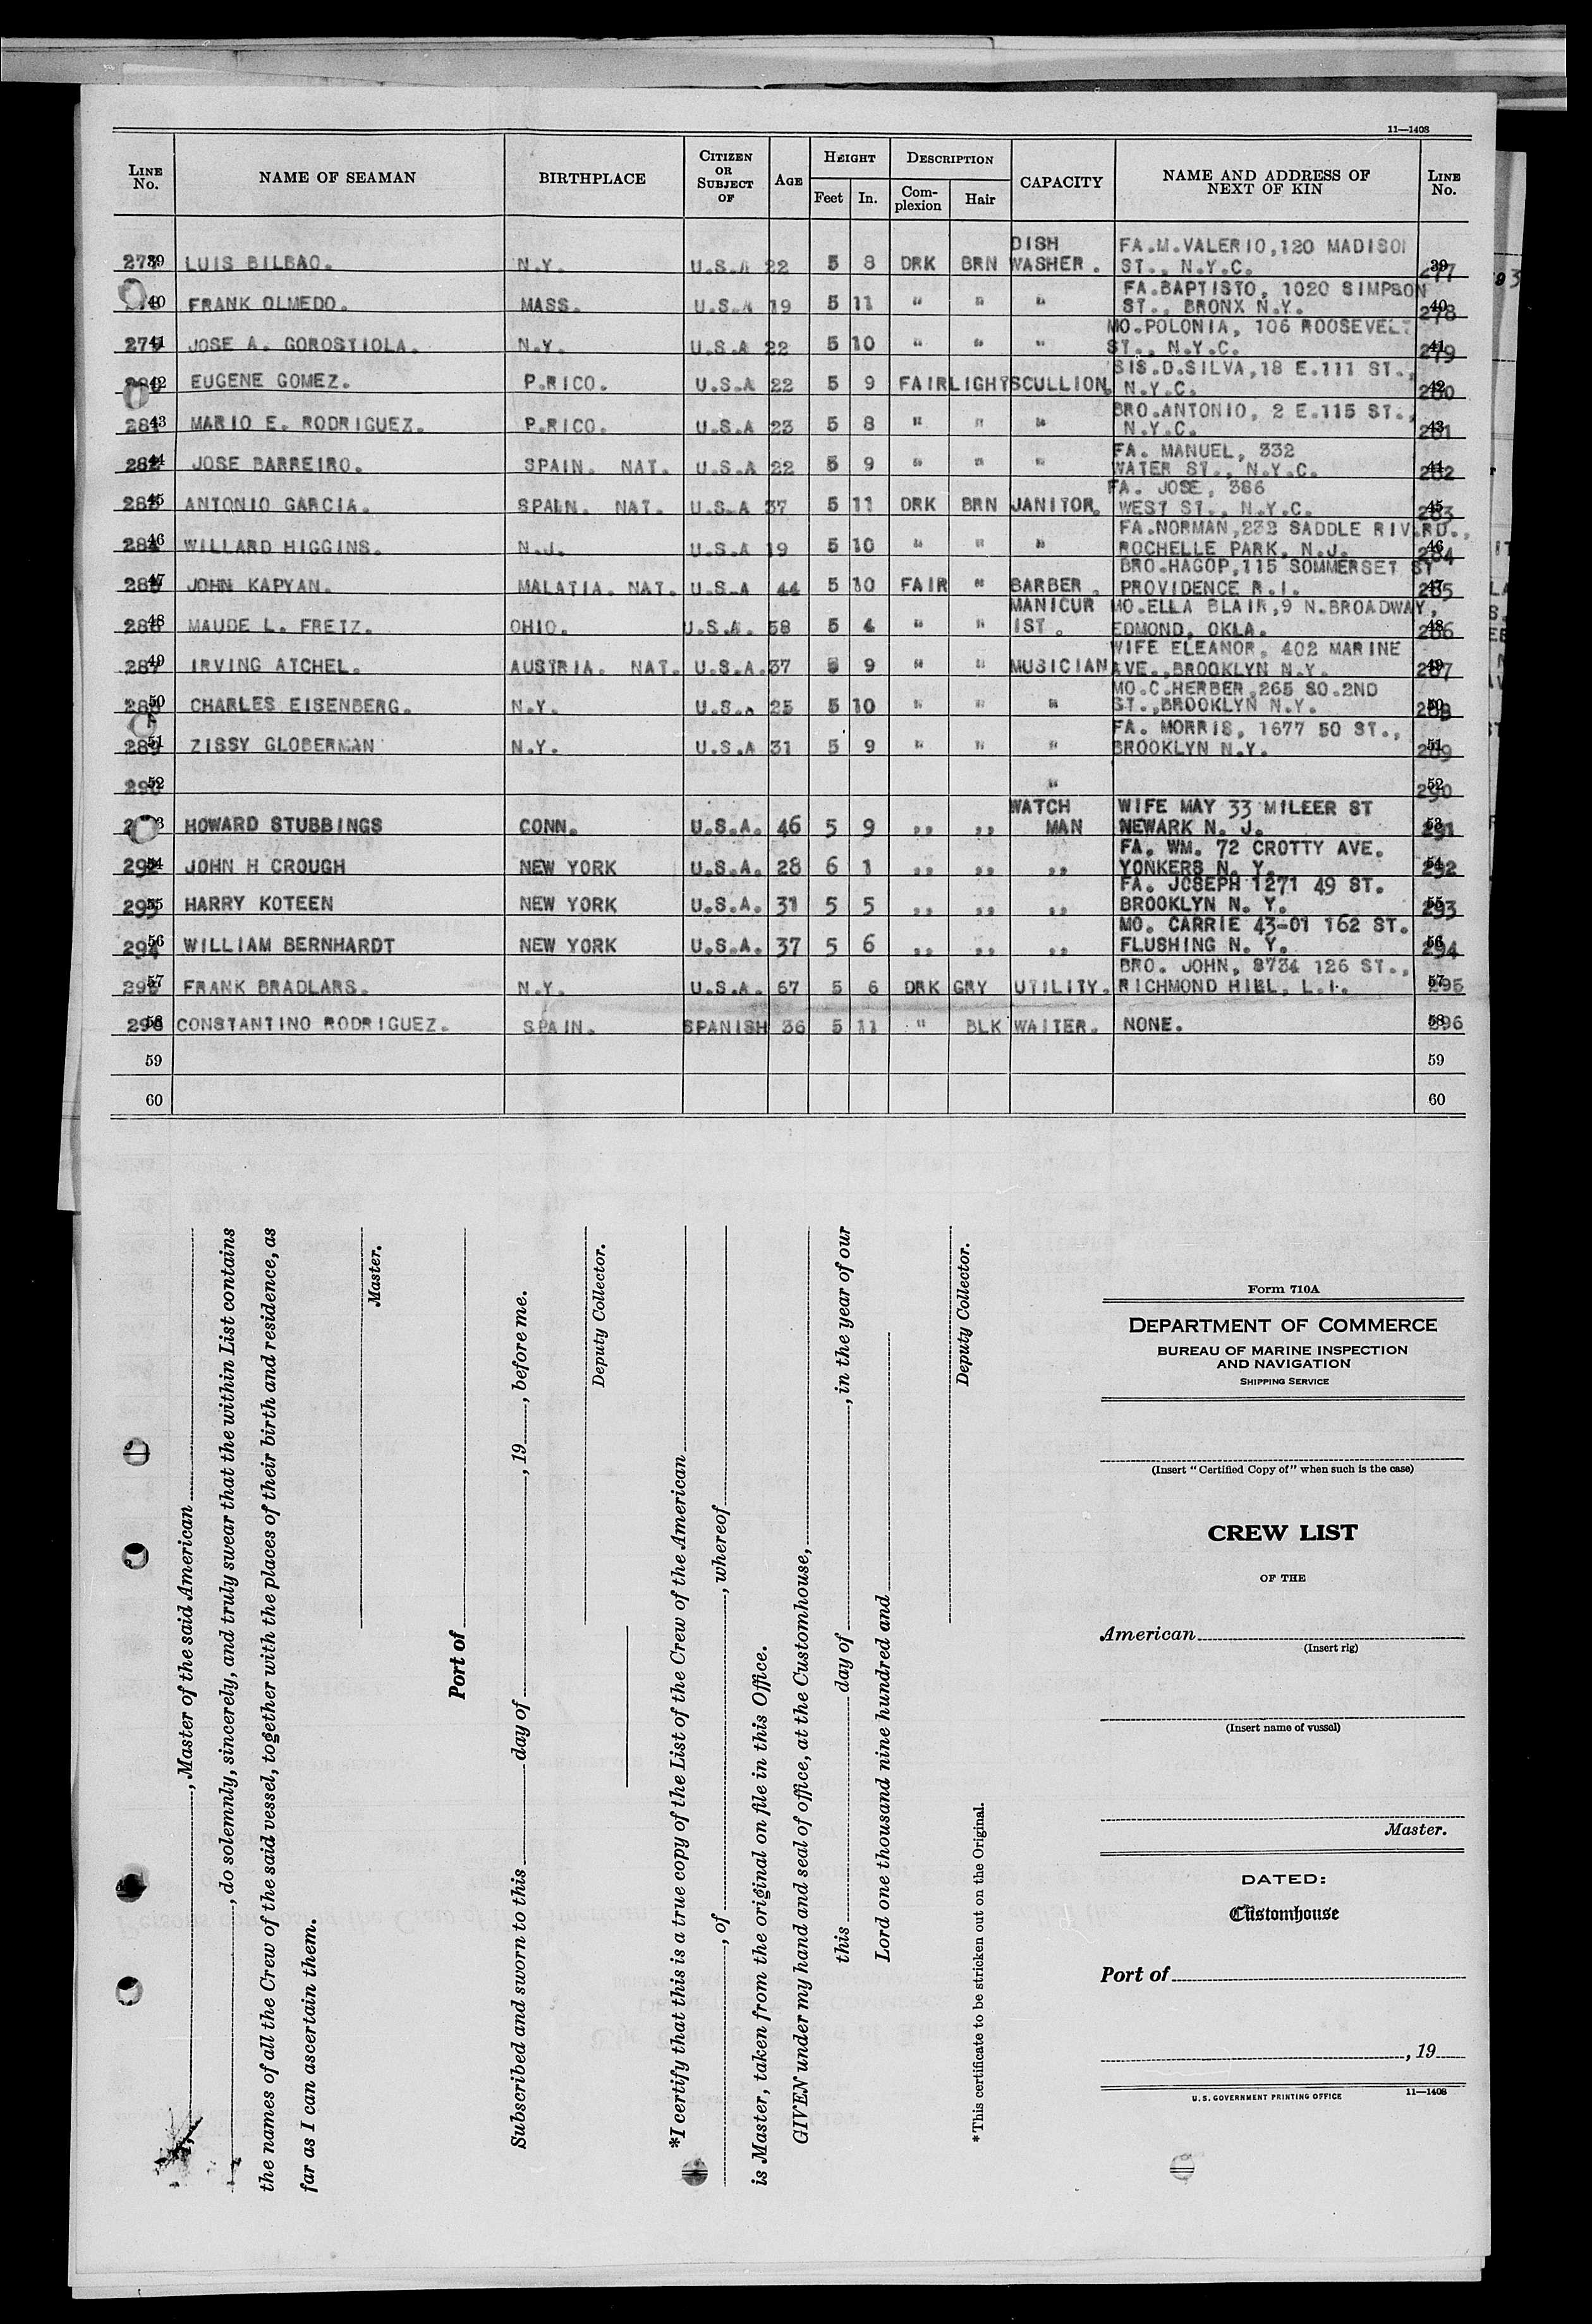 11—1408
LINE No. NAME OF SEAMAN BIRTHPLACE CITIZEN OR SUBJECT OF AGE HEIGHT DESCRIPTION CAPACITY NAME AND ADDRESS OF NEXT OF KIN LINE No.
Feet In. Com-plexion Hair
DISH FA.M.VALERIO,120 MADISO
277 39 LUIS BILBAO. N.Y. U.S.A 22 5 8 DRK BRN WASHER. ST., N.Y.C. 39 277
FA.BAPTISTO, 1020 SIMPSON
40 FRANK OLMEDO. MASS. U.S.A 19 5 11 " " " ST., BRONX N.Y. 40 278
MO.POLONIA, 106 ROOSEVELT
279 41 JOSE A. GOROSTIOLA. N.Y. U.S.A 22 5 10 " " " ST., N.Y.C. 41 279
SIS.D.SILVA,18 E.111 ST.,
280 42 EUGENE GOMEZ. P.RICO. U.S.A 22 5 9 FAIR LIGHT SCULLION. N.Y.C. 42 280
BRO.ANTONIO, 2 E.115 ST.,
281 43 MARIO E. RODRIGUEZ. P.RICO. U.S.A 23 5 8 " " " N.Y.C. 43 281
FA. MANUEL, 332
282 44 JOSE BARREIRO. SPAIN. NAT. U.S.A 22 5 9 " " " WATER ST., N.Y.C. 44 282
FA. JOSE, 386
283 45 ANTONIO GARCIA. SPAIN. NAT. U.S.A 37 5 11 DRK BRN JANITOR. WEST ST., N.Y.C. 45 283
FA.NORMAN,232 SADDLE RIV.RD.,
284 46 WILLARD HIGGINS. N.J. U.S.A 19 5 10 " " " ROCHELLE PARK, N.J. 46 284
BRO.HAGOP,115 SOMMERSET ST
285 47 JOHN KAPYAN. MALATIA. NAT. U.S.A 44 5 10 FAIR " BARBER. PROVIDENCE R.I. 47 285
MANICUR MO.ELLA BLAIR,9 N.BROADWAY,
286 48 MAUDE L. FRETZ. OHIO. U.S.A. 58 5 4 " " IST. EDMOND, OKLA. 48 286
WIFE ELEANOR, 402 MARINE
287 49 IRVING ATCHEL. AUSTRIA. NAT. U.S.A. 37 5 9 " " MUSICIAN AVE.,BROOKLYN N.Y. 49 287
MO.C.HERBER,265 SO.2ND
288 50 CHARLES EISENBERG. N.Y. U.S.A 25 5 10 " " " ST.,BROOKLYN N.Y. 50 288
FA. MORRIS, 1677 50 ST.,
289 51 ZISSY GLOBERMAN N.Y. U.S.A 31 5 9 " " " BROOKLYN N.Y. 51 289
290 52 " 52 290
WATCH WIFE MAY 33 MILEER ST
HOWARD STUBBINGS CONN. U.S.A. 46 5 9 ,, ,, MAN NEWARK N. J. 53 291
FA. WM. 72 CROTTY AVE.
292 54 JOHN H CROUGH NEW YORK U.S.A. 28 6 1 ,, ,, ,, YONKERS N. Y. 54 292
FA. JOSEPH 1271 49 ST.
293 55 HARRY KOTEEN NEW YORK U.S.A. 31 5 5 ,, ,, ,, BROOKLYN N. Y. 55 293
MO. CARRIE 43-01 162 ST.
294 56 WILLIAM BERNHARDT NEW YORK U.S.A. 37 5 6 ,, ,, ,, FLUSHING N. Y. 56 294
BRO. JOHN, 8734 126 ST.,
295 57 FRANK BRADLARS. N.Y. U.S.A. 67 5 6 DRK GRY UTILITY. RICHMOND HILL, L.I. 57 295
296 58 CONSTANTINO RODRIGUEZ. SPAIN. SPANISH 36 5 11 " BLK WAITER. NONE. 58 296
59 59
60 60
, Master of the said American
, do solemnly, sincerely, and truly swear that the within List contains
the names of all the Crew of the said vessel, together with the places of their birth and residence, as
far as I can ascertain them.
Master.
Port of
Subscribed and sworn to this day of , 19 , before me.
Deputy Collector.
*I certify that this is a true copy of the List of the Crew of the American
, of , whereof
is Master, taken from the original on file in this Office.
GIVEN under my hand and seal of office, at the Customhouse,
this day of , in the year of our
Lord one thousand nine hundred and
Deputy Collector.
*This certificate to be stricken out on the Original.
Form 710A
DEPARTMENT OF COMMERCE
BUREAU OF MARINE INSPECTION
AND NAVIGATION
SHIPPING SERVICE
(Insert "Certified Copy of" when such is the case)
CREW LIST
OF THE
American
(Insert rig)
(Insert name of vessel)
Master.
DATED:
Customhouse
Port of
, 19
U.S. GOVERNMENT PRINTING OFFICE 11—1408